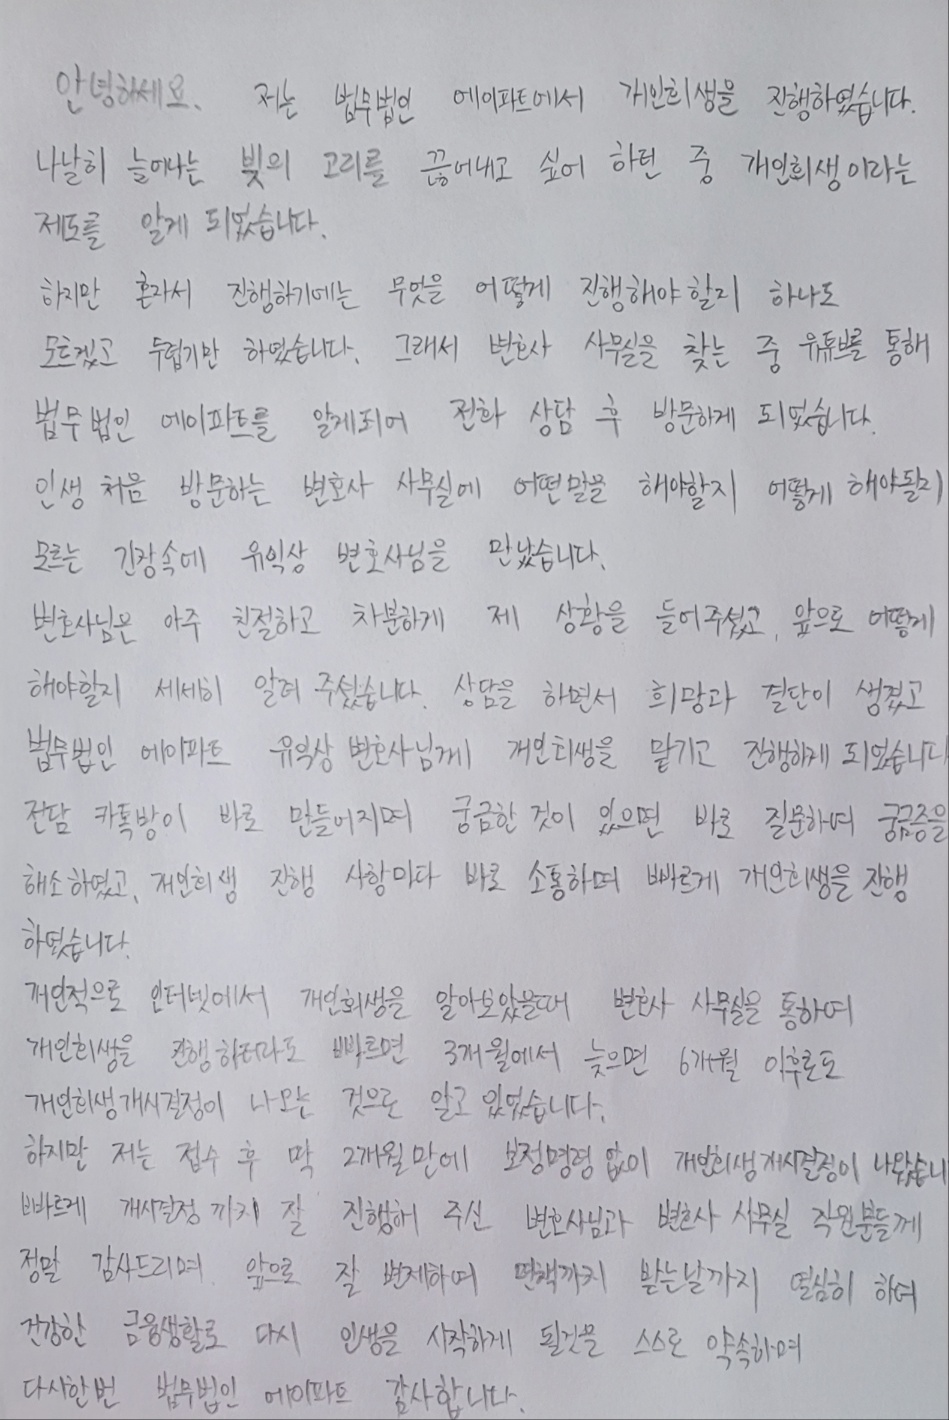 안녕하세요. 저는 법무법인 에이파트에서 개인회생을 진행하였습니다.
나날히 늘어나는 빚의 고리를 끊어내고 싶어 하던 중 개인회생이라는
제도를 알게 되었습니다.
하지만 혼자서 진행하기에는 무엇을 어떻게 진행해야할지 하나도
모르겠고 두렵기만 하였습니다. 그래서 변호사 사무실을 찾는 중 유튜브를 통해
법무법인 에이파트를 알게되어 전화 상담 후 방문하게 되었습니다.
인생 처음 방문하는 변호사 사무실에 어떤말을 해야할지 어떻게 해야될지
모르는 긴장속에 유익상 변호사님을 만났습니다.
변호사님은 아주 친절하고 차분하게 제 상황을 들어주셨고, 앞으로 어떻게
해야할지 세세히 알려주셨습니다. 상담을 하면서 희망과 결단이 생겼고
법무법인 에이파트 유익상 변호사님께 개인회생을 맡기고 진행하게 되었습니다
전담 카톡방이 바로 만들어지며 궁금한 것이 있으면 바로 질문하며 궁금증을
해소하였고, 개인회생 진행 사항마다 바로 소통하며 빠르게 개인회생을 진행
하였습니다.
개인적으로 인터넷에서 개인회생을 알아보았을때 변호사 사무실을 통하여
개인회생을 진행하더라도 빠르면 3개월에서 늦으면 6개월 이후로도
개인회생개시결정이 나오는 것으로 알고 있었습니다.
하지만 저는 접수 후 딱 2개월만에 보정명령 없이 개인회생개시결정이 나왔습니
빠르게 개시결정까지 잘 진행해 주신 변호사님과 변호사 사무실 직원분들께
정말 감사드리며, 앞으로 잘 변제하여 면책까지 받는날까지 열심히 하여
건강한 금융생활로 다시 인생을 시작하게 될것을 스스로 약속하며
다시한번 법무법인 에이파트 감사합니다.